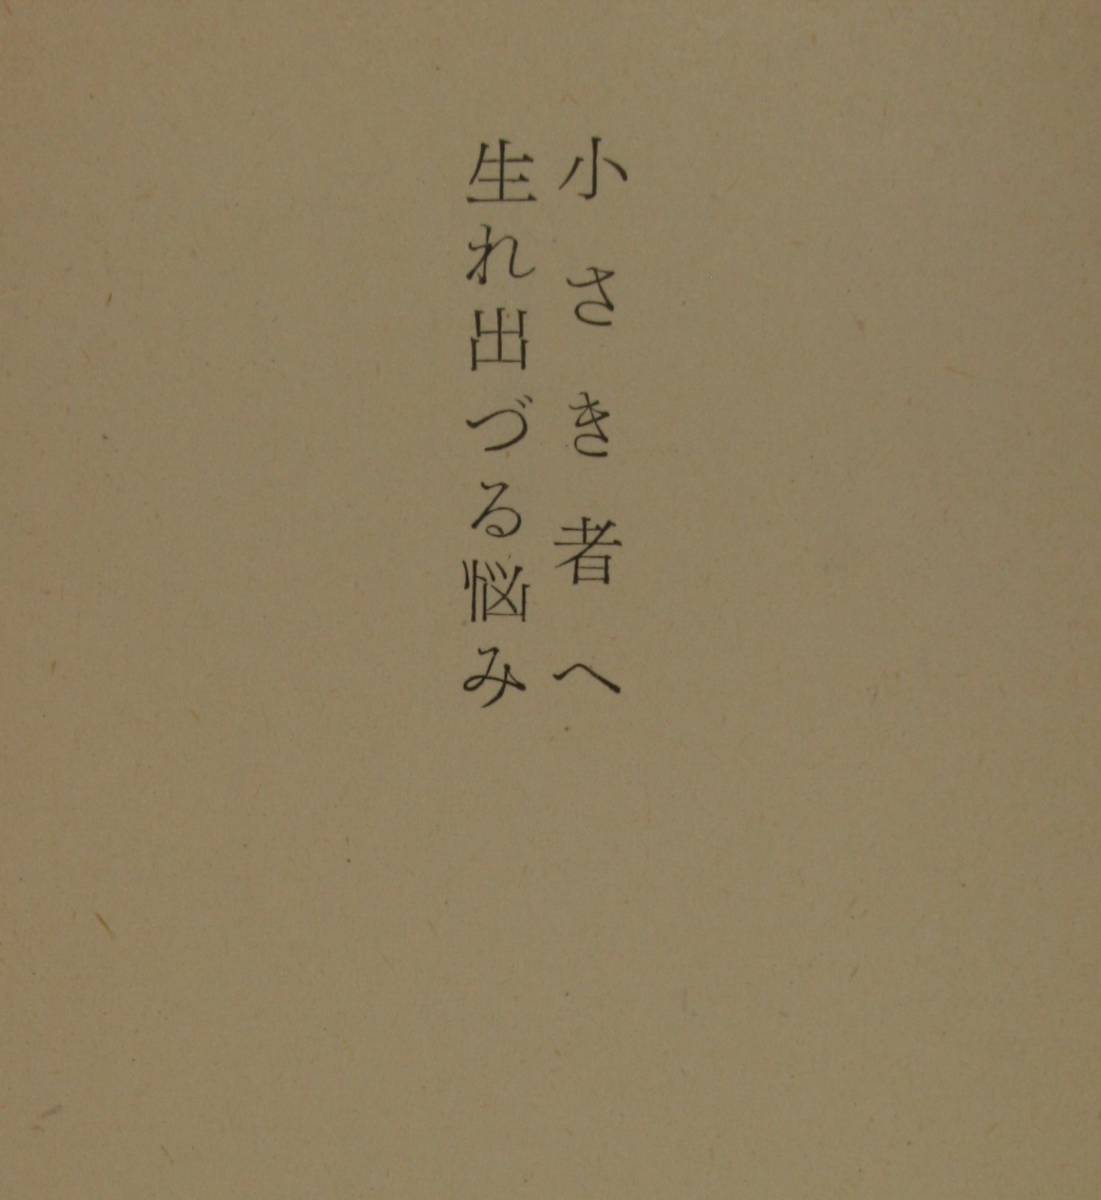 小さき者へ
生れ出づる悩み